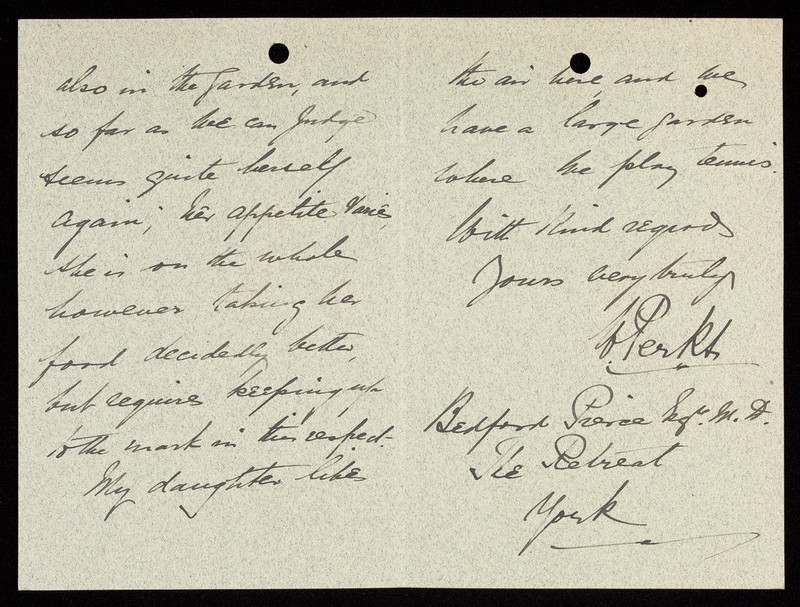 also in the Garden, and
so far as we can judge
seems quite herself
again; her appetite varies,
she is on the whole
however taking her
food decidedly better,
but requires keeping up
to the mark in this respect.
My daughter likes
the air here, and we
have a large garden
where we play tennis.
With kind regards
Yours very truly
W. Perks
Bedford Pierce Esqr. M.D.
The Retreat
York